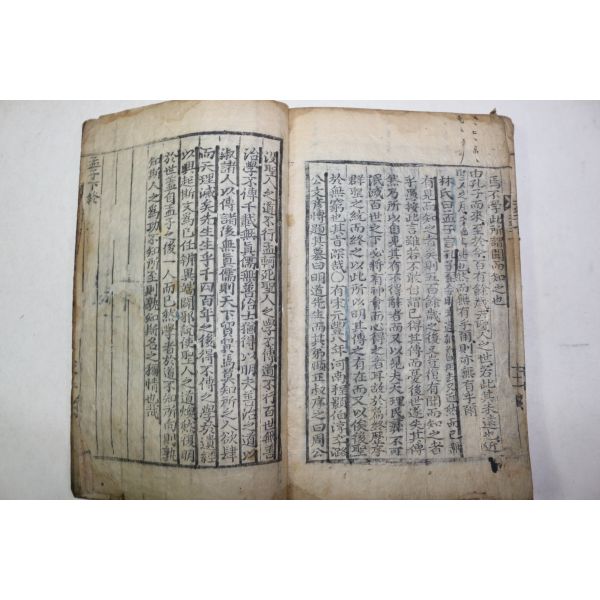 焉不學此所謂聞而知之也
由孔子而來至於今百有餘歲去聖人之世若此其未遠也近
聖人之居若此其甚也然而無有乎爾則亦無有乎爾
林氏曰孟子言孔子至今時未遠鄒魯相去又近然而已無
有見而知之者矣則五百餘歲之後又豈復有聞而知之者
乎愚按此言雖若不敢自謂已得其傳而憂後世遂失其傳
然乃所以自見其有不得辭者而又以見夫天理民彝不可
泯滅百世之下必將有神會而心得之者耳故於篇終歷序
群聖之統而終之以此所以明其傳之有在而又以俟後聖
於無窮也其旨深哉○有宋元豐八年河南程顥伯淳卒潞
公文彥博題其墓曰明道先生而其弟頤正叔序之曰周公
沒聖人之道不行孟軻死聖人之學不傳道不行百世無善
治學不傳千載無眞儒無善治士猶得以明夫善治之道以
淑諸人以傳諸後無眞儒則天下貿貿焉莫知所之人欲肆
而天理滅矣先生生乎千四百年之後得不傳之學於遺經
以興起斯文爲已任辨異端闢邪說使聖人之道煥然復明
於世蓋自孟子之後一人而已然學者於道不知所向則孰
知斯人之爲功不知所至則孰知斯名之稱情也哉
孟子下終